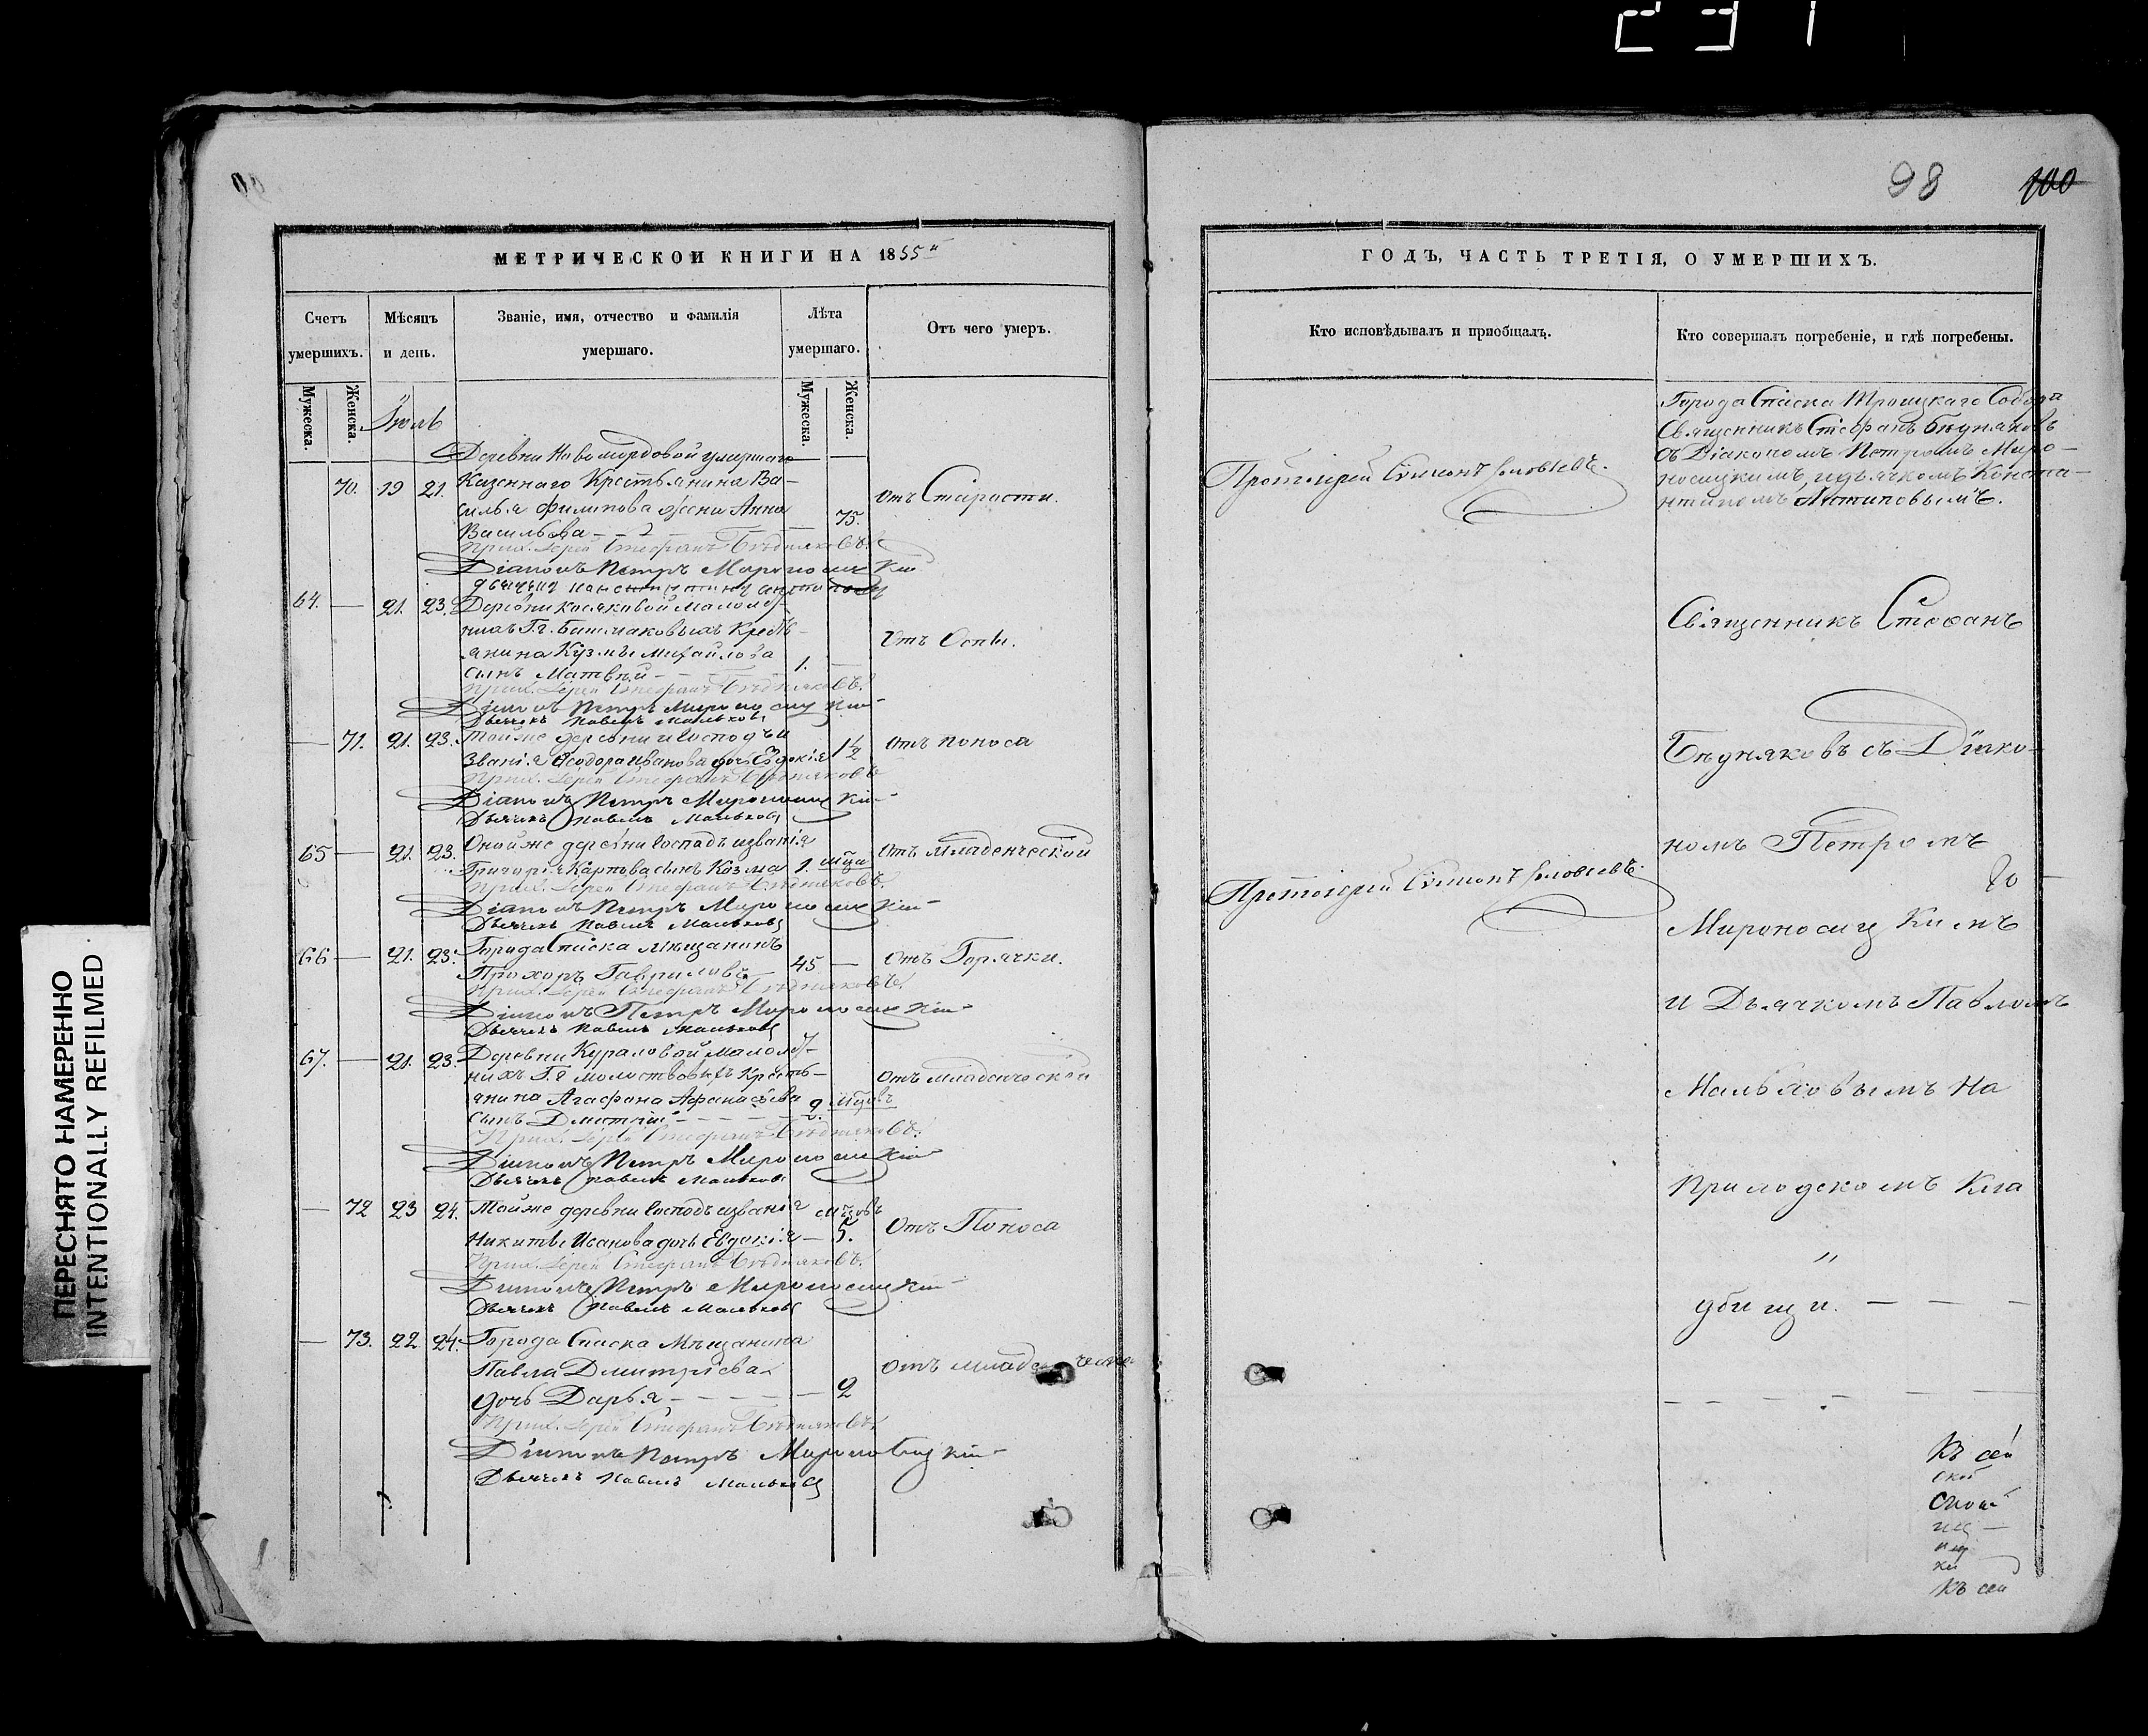 231
98 100
МЕТРИЧЕСКОЙ КНИГИ НА 1855й
Счетъ умершихъ.
Мѣсяцъ и день.
Званіе, имя, отчество и фамилія умершаго.
Лѣта умершаго.
Отъ чего умеръ.
Мужеска.
Женска.
Мужеска.
Женска.
Іюль
Деревни Новомордовой умершаго
70. 19 21. Казеннаго Крестьянина Ва-
силья Филипова жена Анна
Васильева 75. отъ Старости.
Прих. Іерей Стефанъ Бѣдняковъ.
Діаконъ Петръ Мироносицкій
64. — 21. 23. Деревни Косяковой малолѣт-
нихъ Г.г. Бутлаковыхъ Кресть-
янина Кузмы Михайлова
сынъ Матвѣй 1. — Отъ Оспы.
Прих. Іерей Стефанъ Бѣдняковъ.
Діаконъ Петръ Мироносицкій
Дьячекъ Павелъ Мальковъ
— 71. 21. 23. Тойже деревни и Господъ и
званія Ѳеодора Иванова дочь Евдокія 1½ отъ поноса
Прих. Іерей Стефанъ Бѣдняковъ
Діаконъ Петръ Мироносицкій
Дьячекъ Павелъ Мальковъ
65 — 21. 23. Онойже деревни Господъ и званія
Григорія Карпова сынъ Козма 1. мца Отъ младенческой
Прих. Іерей Стефанъ Бѣдняковъ.
Діаконъ Петръ Мироносицкій
Дьячекъ Павелъ Мальковъ
66 — 21. 23. Города Спаска мѣщанинъ
Прохоръ Гавриловъ 45 — отъ Горячки.
Прих. Іерей Стефанъ Бѣдняковъ.
Діаконъ Петръ Мироносицкій
Дьячекъ Павелъ Мальковъ
67. — 21. 23. Деревни Кураловой малолѣт-
нихъ Г.г. Молоствовыхъ Кресть-
янина Агафона Афанасьева
сынъ Дмитрій 2. мцовъ отъ младенческой
Прих. Іерей Стефанъ Бѣдняковъ.
Діаконъ Петръ Мироносицкій
Дьячекъ Павелъ Мальковъ
— 72 23 24. Тойже деревни Господъ и званія мцовъ
Никиты Иванова дочь Евдокія — 5. Отъ Поноса
Прих. Іерей Стефанъ Бѣдняковъ.
Діаконъ Петръ Мироносицкій
Дьячекъ Павелъ Мальковъ
— 73. 22 24. Города Спаска Мѣщанина
Павла Дмитріева
дочь Дарья 2 отъ младенческой
Прих. Іерей Стефанъ Бѣдняковъ
Діаконъ Петръ Мироносицкій
Дьячекъ Павелъ Мальковъ
ГОДЪ, ЧАСТЬ ТРЕТІЯ, О УМЕРШИХЪ.
Кто исповѣдывалъ и пріобщалъ.
Кто совершалъ погребеніе, и гдѣ погребены.
Протоіерей Симеонъ Соловьевъ.
Протоіерей Симеонъ Соловьевъ.
Города Спаска Троицкаго Собора
Священникъ Стефанъ Бѣдняковъ
съ Діакономъ Петромъ Миро-
носицкимъ, и дьячкомъ Конста-
нтиномъ Антиповымъ.
Священникъ Стефанъ
Бѣдняковъ съ Діако-
номъ Петромъ
Мироносицкимъ
и Дьячкомъ Павломъ
Мальковымъ на
приходскомъ кла
дбищи.
Къ сей
Къ сей
ПЕРЕСНЯТО НАМЕРЕННО
INTENTIONALLY REFILMED